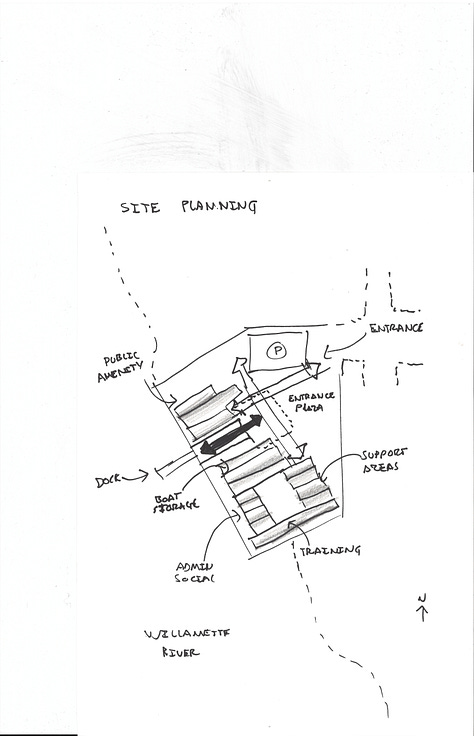 SITE PLANNING
ENTRANCE
P
PUBLIC
AMENITY
ENTRANCE
PLAZA
SUPPORT
AREAS
DOCK
BOAT
STORAGE
TRAINING
ADMIN
SOCIAL
N
WILLAMETTE
RIVER